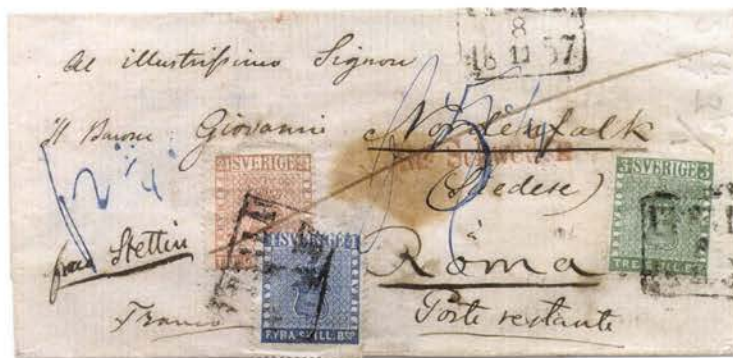 8
18 11 57
Al illustrissimo Signore
Il Barone Giovanni Nordenfalk
aus Schweden
(Svedese)
SVERIGE
3 SVERIGE 3
franco Stettin
à
Roma
SVERIGE
TRE SKILL. B
FYRA SKILL. BCO
Franco
Poste restante